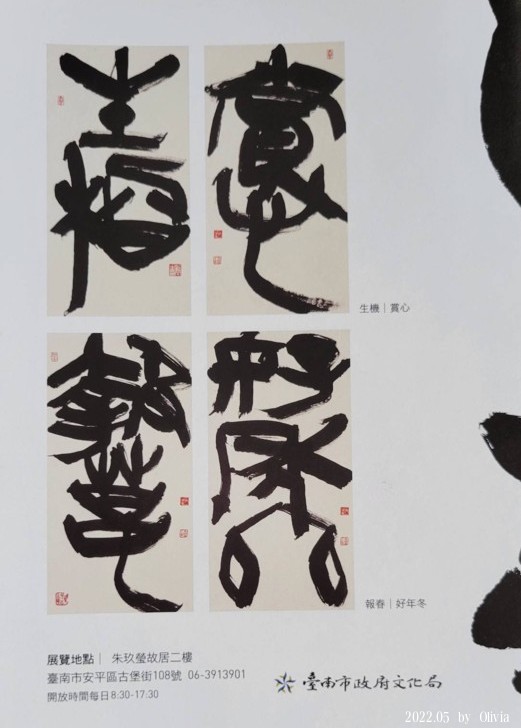 生機
賞心
生機｜賞心
報春
好年冬
報春｜好年冬
展覽地點｜ 朱玖瑩故居二樓
臺南市安平區古堡街108號 06-3913901
開放時間每日8:30-17:30
臺南市政府文化局
2022.05 by Olivia